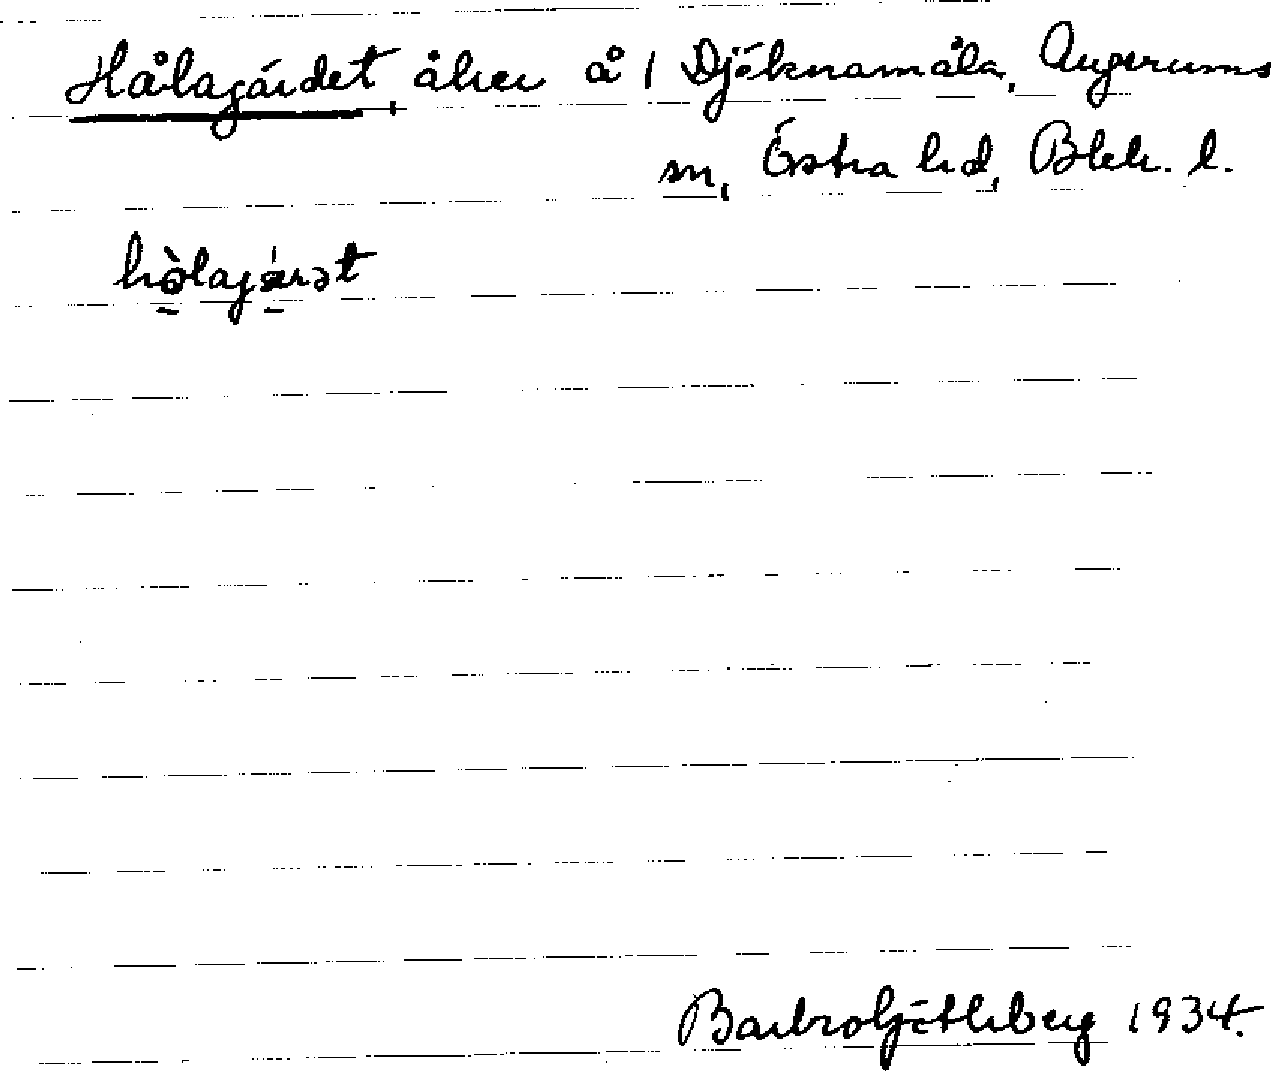 Hålagärdet, åker å 1 Djöknamåla, Augerums
sn, Östra hd, Blek. l.
hòlagárət
Barbro Götlberg 1934.